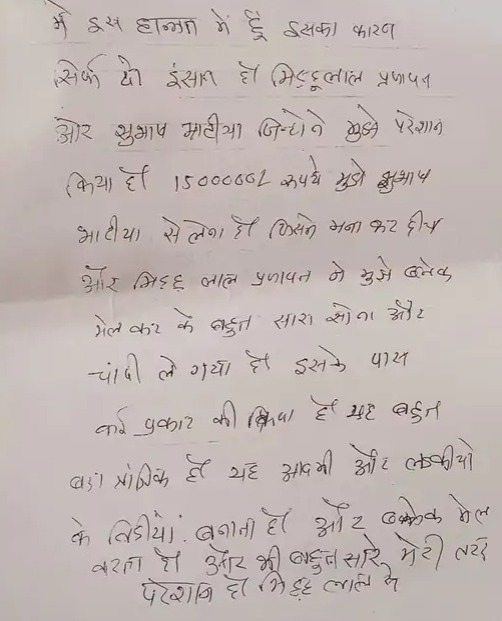 मे इस हालत में हूँ इसका कारण
सिर्फ दो इंसान हौ मिठ्ठूलाल प्रजापत
और सुभाष भाटीया जिन्होने मुझे परेशान
किया हौ 1500000L रूपये मुझे सुभाष
भाटीया से लेना हौ जिसने मना कर दीया
और मिठ्ठू लाल प्रजापत ने मुझे ब्लेक
मेल कर के बहुत सारा सोना और
चांदी ले गया हौ इसके पास
कई प्रकार की हौ यह बहुत
बड़ा तांत्रिक हौ यह आदमी और लडकीयो
के विडीयों बनाता हौ और ब्लेक मेल
करता हौ और भी बहुत सारे मेरी तरह
परेशान हौ मिठ्ठू लाल से